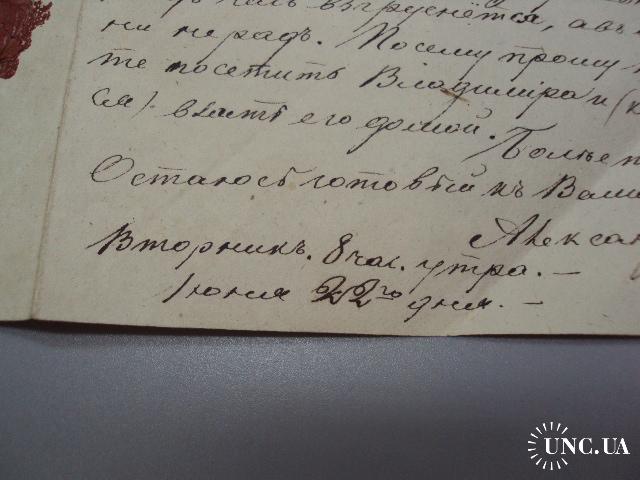 взгруснется, а въ
ни не радъ. Посему прошу
те посетить Владиміра и (
ся). взять его домой.
Болѣе
Остаюсь готовый къ Вамъ
Алекса
Вторникъ. 8 час. утра. —
Іюня 22го дня. —
UNC.UA